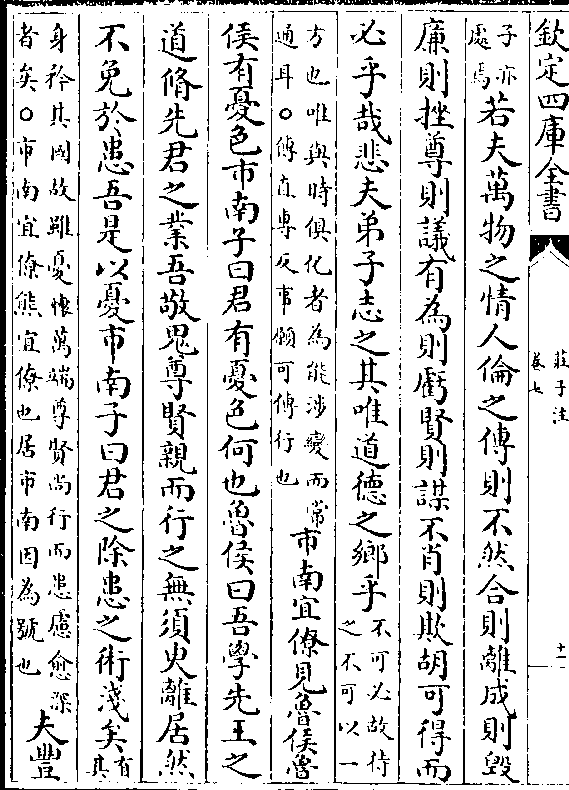 欽定四庫全書
莊子注
卷七
十一
子亦
處焉
若夫萬物之情人倫之傳則不然合則離成則毀
廉則挫尊則議有為則虧賢則謀不肖則欺胡可得而
必乎哉悲夫弟子志之其唯道德之鄉乎
不可必故待
之不可以一
方也唯與時俱化者為能涉變而常
通耳○傳直專反事類可傳行也
市南宜僚見魯侯魯
侯有憂色市南子曰君有憂色何也魯侯曰吾學先王之
道脩先君之業吾敬鬼尊賢親而行之無須臾離居然
不免於患吾是以憂市南子曰君之除患之術淺矣
有
其
身矜其國故雖憂懷萬端尊賢尚行而患慮愈深
者矣○市南宜僚熊宜僚也居市南因為號也
夫豐